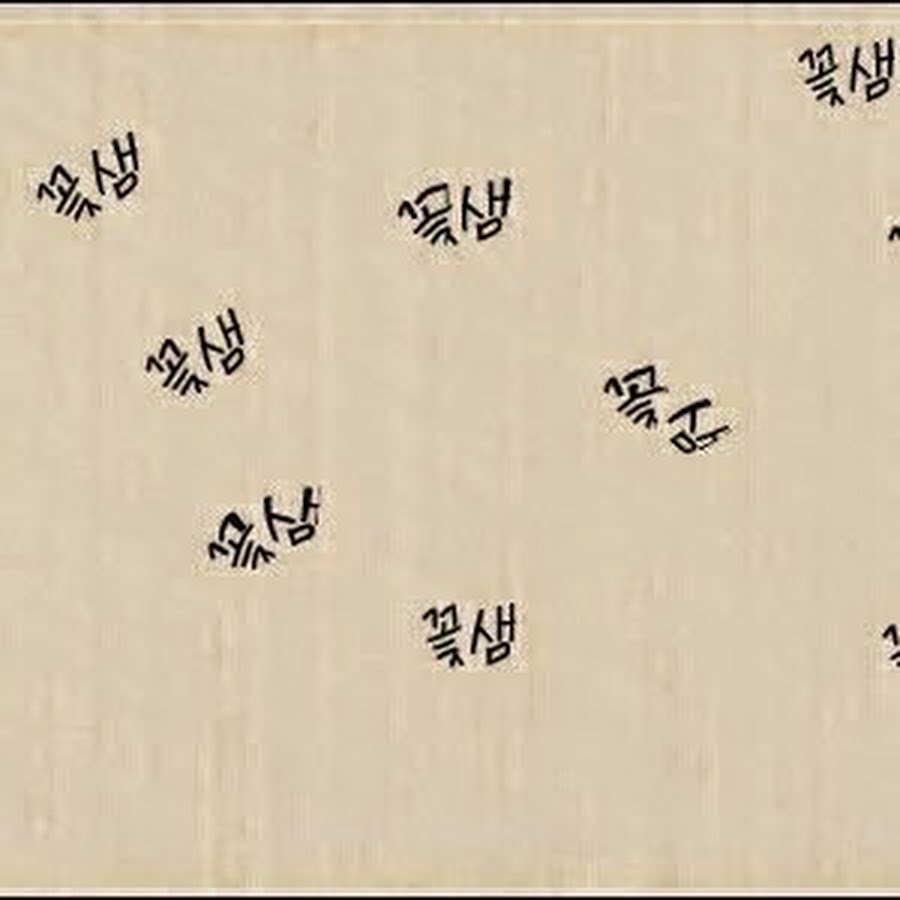 꽃샘
꽃샘
꽃샘
꽃샘
꽃샘
꽃샘
꽃샘